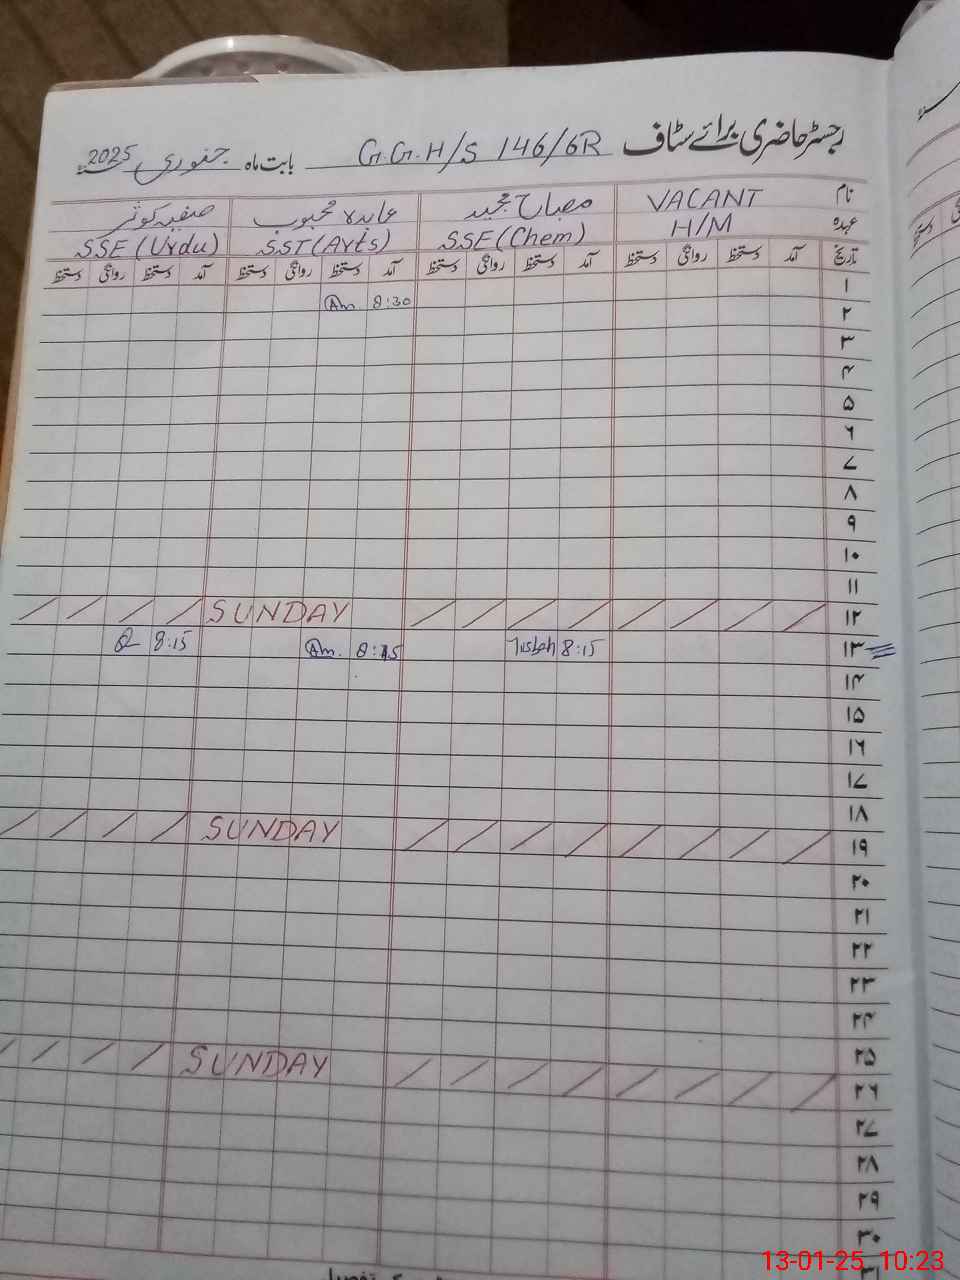 رجسٹر حاضری برائے سٹاف G.G.H/S 146/6R بابت ماہ جنوری 2025
نام VACANT مصباح مجید عابدہ محبوب صفیہ کوثر
عہدہ H/M SSE (Chem) SST (Arts) SSE (Urdu)
تاریخ آمد دستخط روانگی دستخط آمد دستخط روانگی دستخط آمد دستخط روانگی دستخط آمد دستخط روانگی دستخط
۱ 8:30 Am
۲
۳
۴
۵
۶
۷
۸
۹
۱۰
۱۱
۱۲ SUNDAY
۱۳ 8:15 Misbah 8:15 Am. 8:15
۱۴
۱۵
۱۶
۱۷
۱۸
۱۹ SUNDAY
۲۰
۲۱
۲۲
۲۳
۲۴
۲۵
۲۶ SUNDAY
۲۷
۲۸
۲۹
۳۰
۳۱
13-01-25 10:23